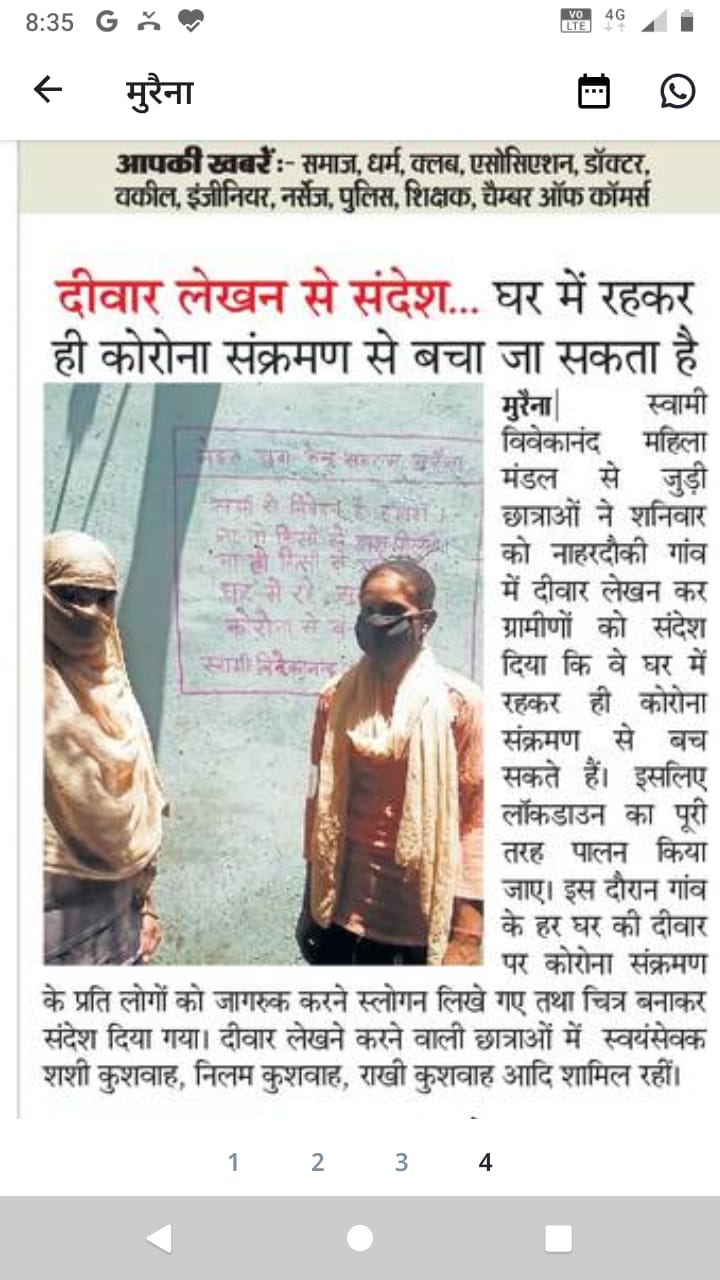 8:35
VO LTE 4G
मुरैना
आपकी खबरें :- समाज, धर्म, क्लब, एसोसिएशन, डॉक्टर,
वकील, इंजीनियर, नर्सेज, पुलिस, शिक्षक, चैम्बर ऑफ कॉमर्स
दीवार लेखन से संदेश... घर में रहकर
ही कोरोना संक्रमण से बचा जा सकता है
सभी से निवेदन है
घर में रहे
कोरोना से
स्वामी विवेकानन्द
मुरैना| स्वामी
विवेकानंद महिला
मंडल से जुड़ी
छात्राओं ने शनिवार
को नाहरदौकी गांव
में दीवार लेखन कर
ग्रामीणों को संदेश
दिया कि वे घर में
रहकर ही कोरोना
संक्रमण से बच
सकते हैं। इसलिए
लॉकडाउन का पूरी
तरह पालन किया
जाए। इस दौरान गांव
के हर घर की दीवार
पर कोरोना संक्रमण
के प्रति लोगों को जागरुक करने स्लोगन लिखे गए तथा चित्र बनाकर
संदेश दिया गया। दीवार लेखने करने वाली छात्राओं में स्वयंसेवक
शशी कुशवाह, निलम कुशवाह, राखी कुशवाह आदि शामिल रहीं।
1 2 3 4